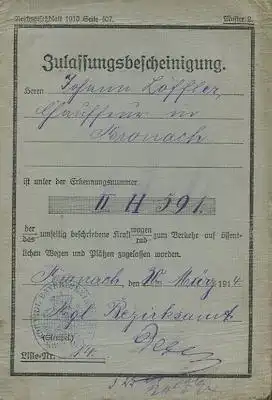 Reichsgesetzblatt 1910 Seite 407. Muster 2.
Zulassungsbescheinigung.
Herrn Johann Löffler,
Chauffeur in
Kronach
ist unter der Erkennungsnummer
II H 591.
der/das umseitig beschriebene Kraftwagen/rad zum Verkehr auf öffent-
lichen Wegen und Plätzen zugelassen worden.
Kronach, den 20. März 1914
Kgl. Bezirksamt
(Stempel)
Liste-Nr. 14.